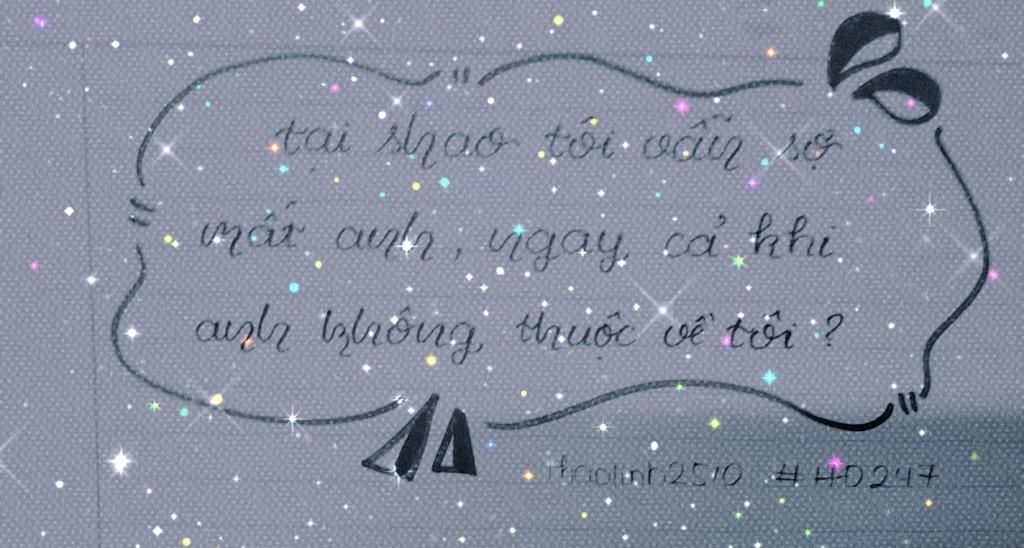 tại shao tôi vẫn sợ
mất anh, ngay cả khi
anh không thuộc về tôi?
thaolinh2510 #HD247